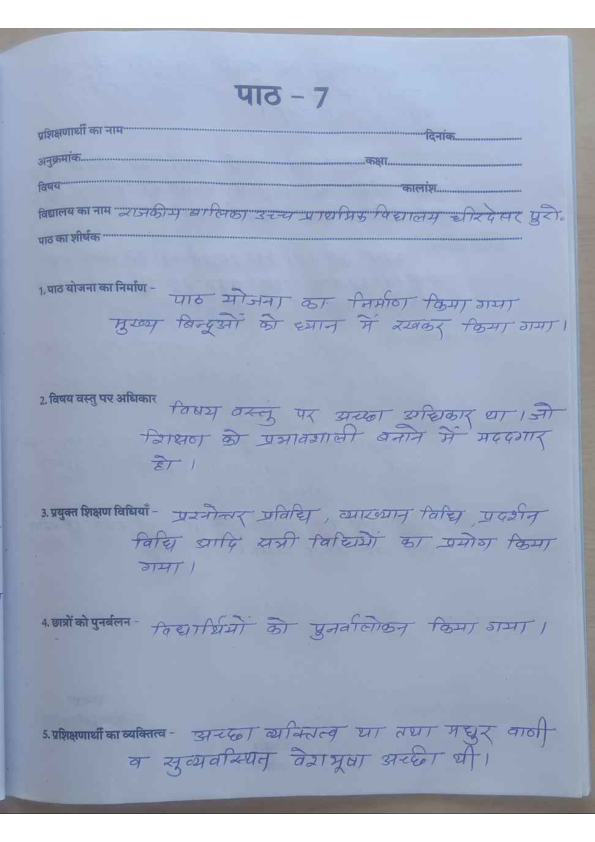 पाठ – 7
प्रशिक्षणार्थी का नाम दिनांक
अनुक्रमांक कक्षा
विषय कालांश
विद्यालय का नाम राजकीय बालिका उच्च प्राथमिक विद्यालय धीरदेसर पुरो.
पाठ का शीर्षक
1. पाठ योजना का निर्माण – पाठ योजना का निर्माण किया गया
मुख्य बिन्दूओं को ध्यान में रखकर किया गया।
2. विषय वस्तु पर अधिकार विषय वस्तु पर अच्छा अधिकार था। जो
शिक्षण को प्रभावशाली बनाने में मददगार
हो।
3. प्रयुक्त शिक्षण विधियाँ – प्रश्नोत्तर प्रविधि, व्याख्यान विधि, प्रदर्शन
विधि आदि सभी विधियों का प्रयोग किया
गया।
4. छात्रों को पुनर्बलन – विद्यार्थियों को पुनर्वालोकन किया गया।
5. प्रशिक्षणार्थी का व्यक्तित्व – अच्छा व्यक्तित्व था तथा मधुर वाणी
व सुव्यवस्थित वेशभूषा अच्छी थी।